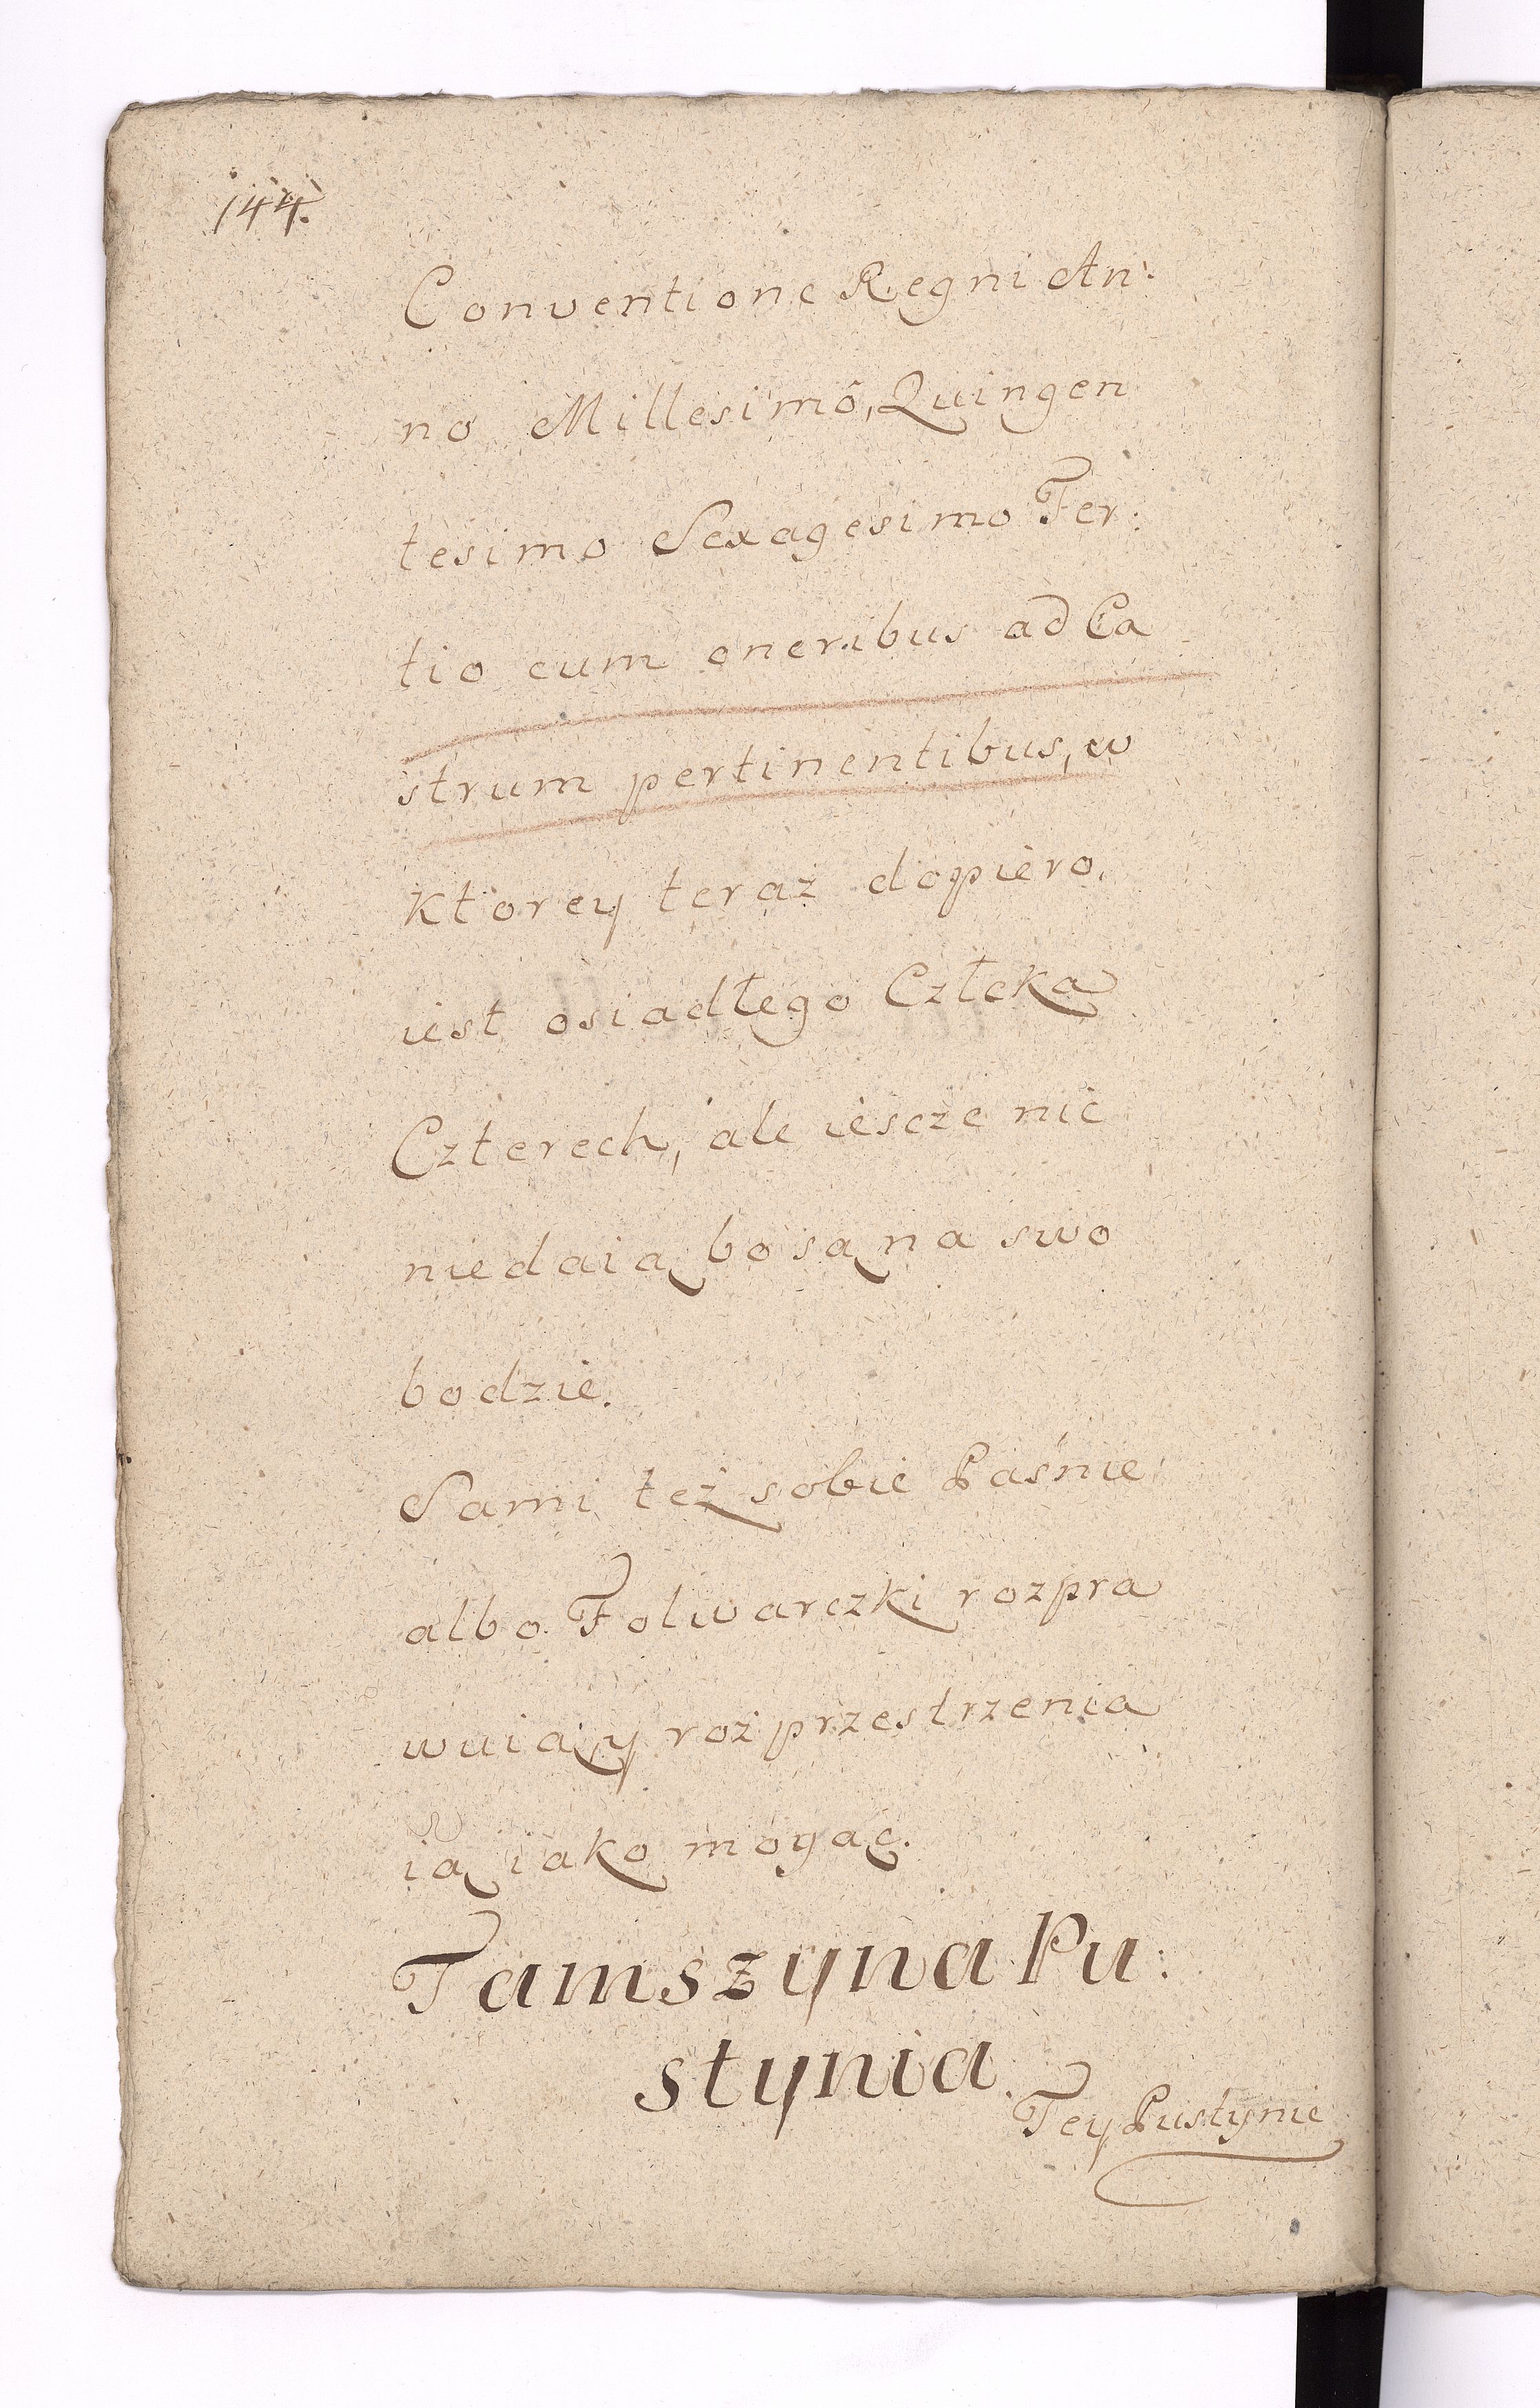 144.
Conventione Regni An:
no Millesimô, Quingen
tesimo Sexagesimo Ter:
tio cum oneribus ad Ca
strum pertinentibus, w
ktorey teraz dopiero,
iest osiadłego Człeka
Czterech, ale iescze nic
niedaią bo są na swo
bodzie.
Sami też sobie Paśnie
albo Folwarczki rozpra
wuią y rozprzestrzenia
ią iako mogąc.
Tamszyna Pu:
stynia.
Tey Pustynie